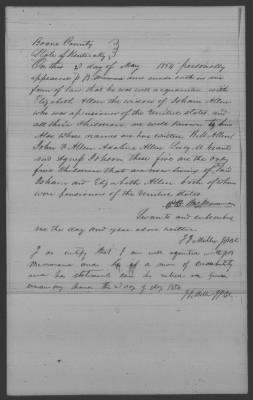 Boone County
State of Kentucky
On this 2 day of May 1854 personally
appeared B and made oath in due
form of law that he was well acquainted with
Elizabeth Allen the widow of Johan Allen
who was a pensioner of the united states and
all their Children are well known to him
Also whose names are here written B. H. Allen
John F Allen Adaline Allen Lucy M
and these five are the only
five Children that are now living of said
Johan and Elizabeth Allen both of whom
were pensioners of the united states
Sworn to and subscribed
me the day and year above written
J J Miller JPBC
I do certify that I am well acquainted with
and he is a man of credibility
and his statements can be relied on given
under my hand the 2 day of May 1854
J J Miller JPBC